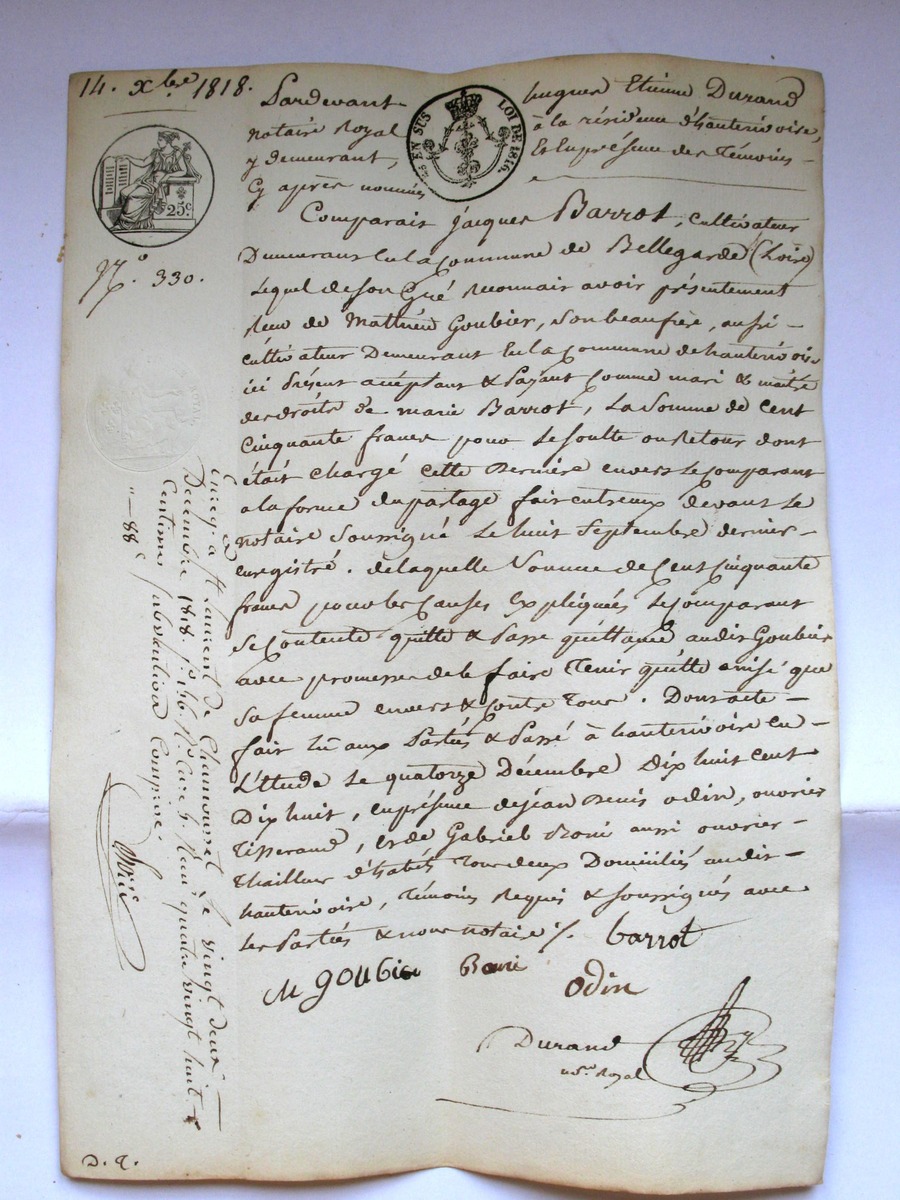 14. xbre 1818.
Pardevant hugues Etienne Durand
notaire Royal à la résidence d'hauterivoire,
y demeurant, Et En présence des Témoins
Cy après nommés
EN SUS LOI DE 1816.
25c.
N.o 330.
Comparait jacques Barrot, cultivateur
Demeurant En la Commune de Bellegarde (Loire)
Lequel de son Gré reconnait avoir présentement
Reçu de Matthieu Goubier, son beaufrère, aussi
cultivateur Demeurant En la Commune de hauterivoire
ici Présent acceptant & Payant Comme mari & maitre
des droits de marie Barrot, La Somme de Cent
Cinquante francs pour Le Soulte ou Retour dont
était chargé cette Dernière envers le Comparant
a la forme du partage fait entreux devant Le
notaire Soussigné Le huit Septembre dernier
enregistré. de laquelle Somme de Cent Cinquante
francs pour les Causes Expliquées le Comparant
Se Contente quitte & Passe quittance audit Goubier
avec promesse de le faire Tenir quitte ainsi que
Sa femme envers & Contre Tous. Dont acte
fait Lu aux Parties & Passé à hauterivoire En
L'Etude Le quatorze Décembre Dix huit Cent
Dix huit, en présence de jean Denis odin, ouvrier
Tisserand, et de Gabriel aussi ouvrier
Thailleur d'habits Tous deux Domiciliés audit
hauterivoire, Témoins Requis & Soussignés avec
Les Parties & nous notaire ./. barrot
M goubier
odin
Durand
Royal
Enregistré à St Laurent de Chamousset le vingt deux
Décembre 1818. Reçu quatre vingt huit
Centimes subvention Comprise
" — 88c
D. q.